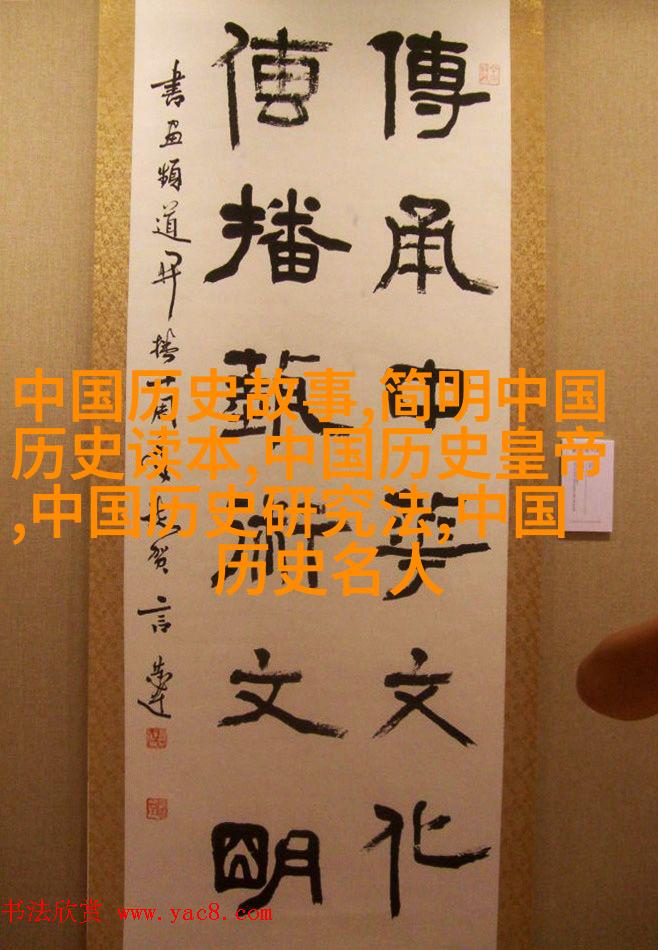 傳承中華文化
傳播藝術文明
書画頻道开播十周賀言恭達
中国历史故事,简明中国
历史读本,中国历史皇帝
,中国历史研究法,中国
历史名人
书法欣赏 www.yac8.com